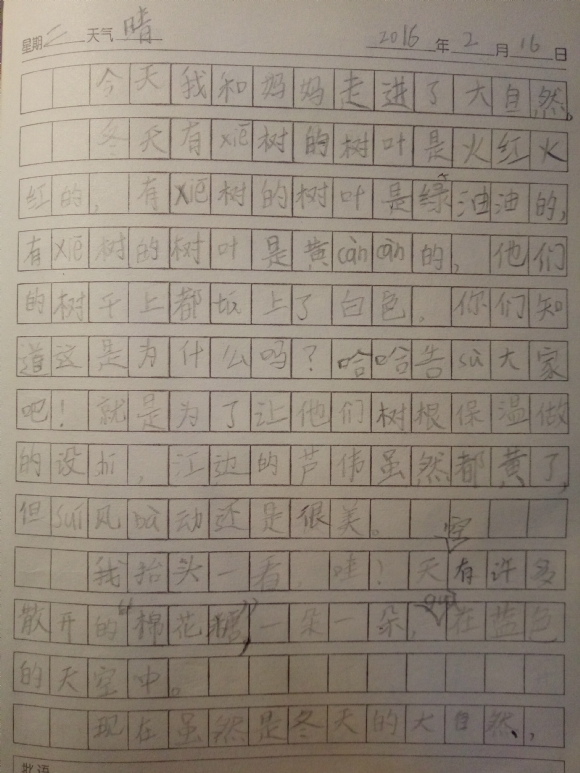 星期二 天气 晴 2016年2月16日
今天我和妈妈走进了大自然。
冬天有xiē树的树叶是火红火
红的，有xiē树的树叶是绿油油的，
有xiē树的树叶是黄càncàn的，他们
的树干上都tú上了白色，你们知
道这是为什么吗？哈哈告sù大家
吧！就是为了让他们树根保温做
的设jì，江边的芦伟虽然都黄了，
但suí风bǎi动还是很美。
我抬头一看，哇！天空有许多
散开的“棉花糖”，一朵一朵，在蓝色
的天空中。
现在虽然是冬天的大自然，
批语